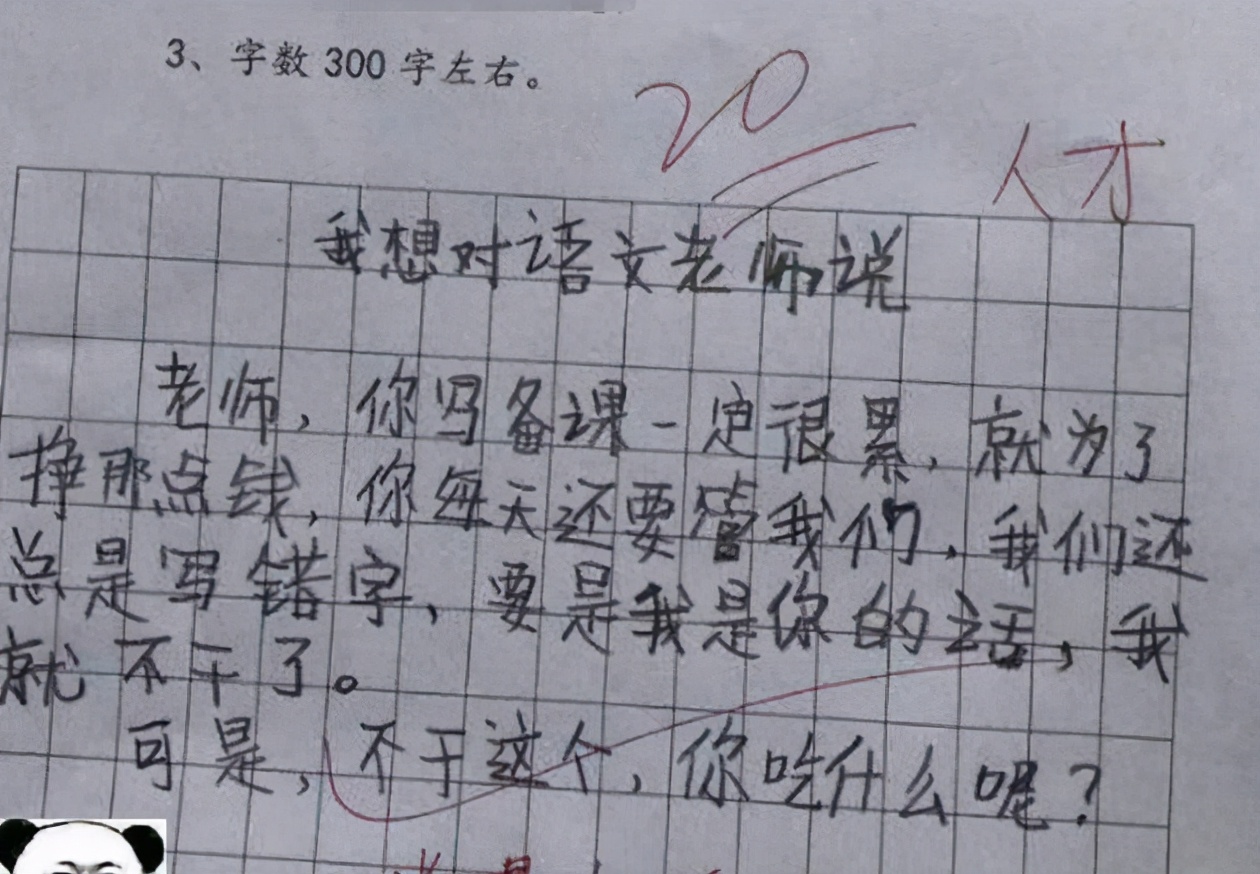 3、字数 300 字左右。
20
人才
我想对语文老师说
老师，你写备课一定很累，就为了
挣那点钱，你每天还要管我们，我们还
总是写错字，要是我是你的话，我
就不干了。
可是，不干这个，你吃什么呢？